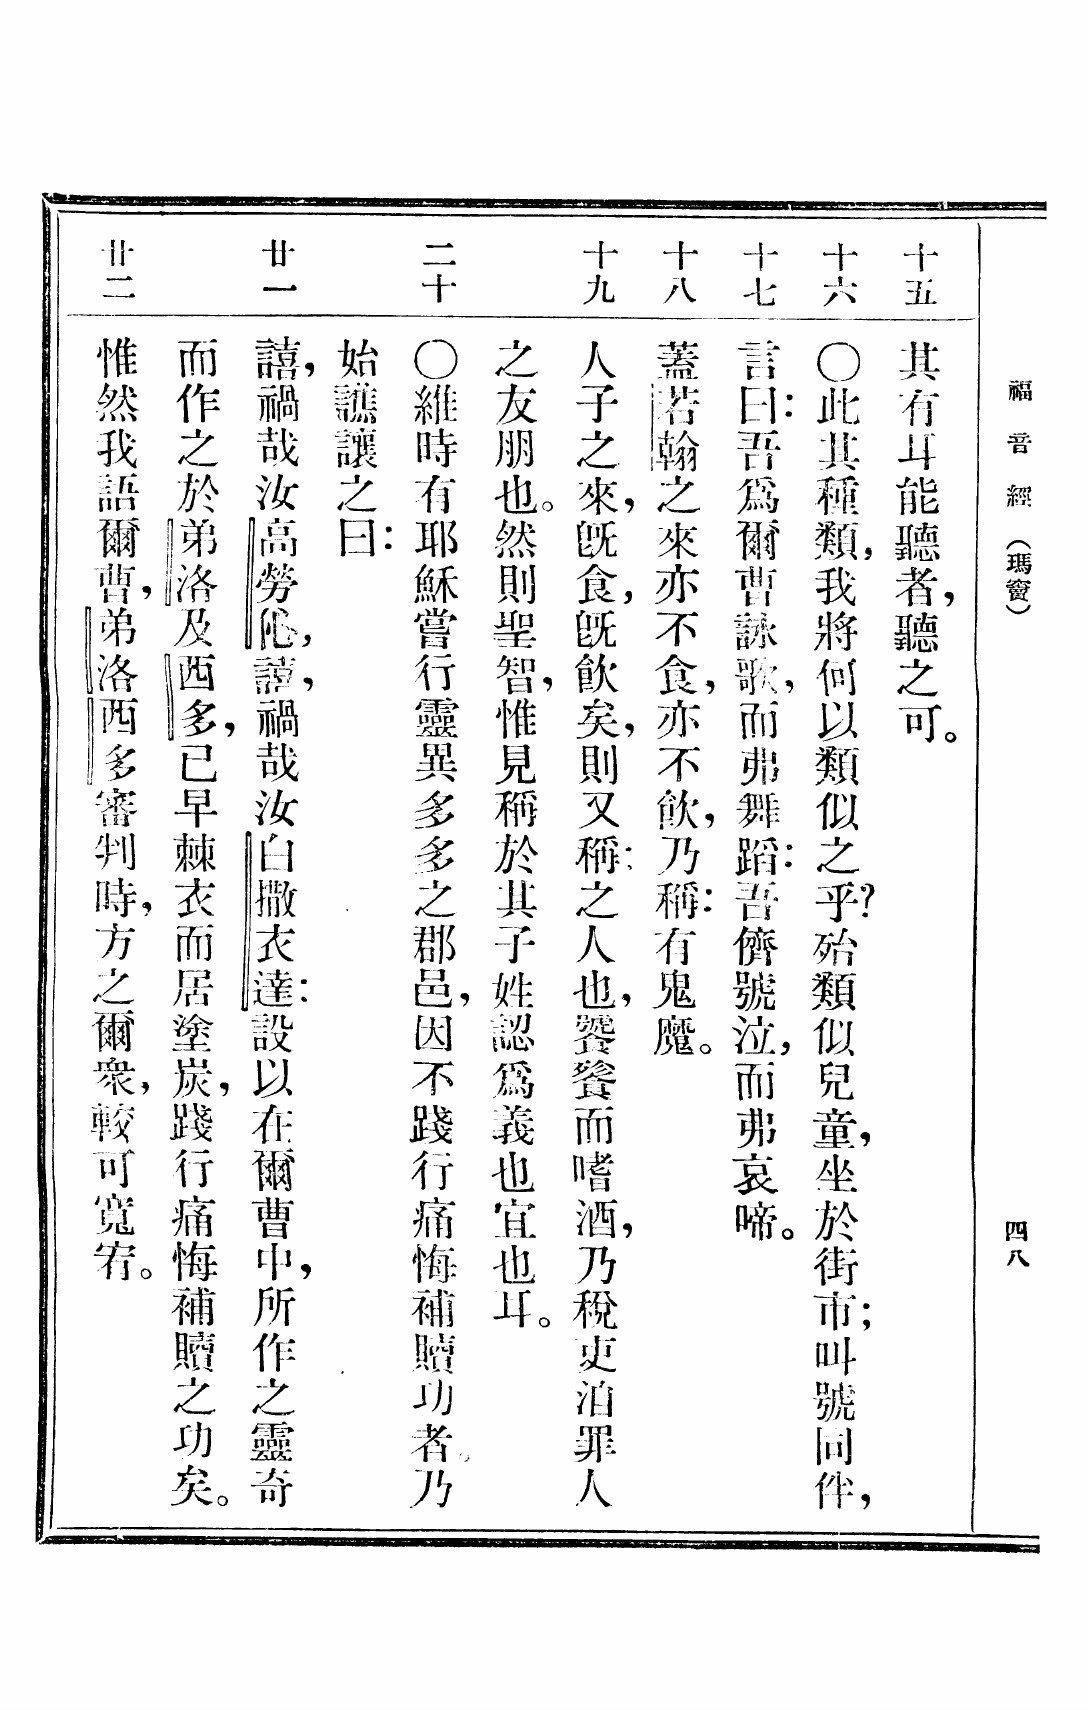 福音經（瑪竇）
四八
十五
其有耳能聽者，聽之可。
十六
〇此其種類，我將何以類似之乎？殆類似兒童，坐於街市；叫號同伴，
十七
言曰：吾爲爾曹詠歌，而弗舞蹈：吾儕號泣，而弗哀啼。
十八
蓋若翰之來亦不食，亦不飮，乃稱：有鬼魔。
十九
人子之來，旣食，旣飮矣，則又稱：之人也，饕餮而嗜酒，乃稅吏洎罪人
之友朋也。然則聖智，惟見稱於其子姓認爲義也宜也耳。
二十
〇維時有耶穌嘗行靈異多多之郡邑，因不踐行痛悔補贖功者。乃
始譙讓之曰：
廿一
譆，禍哉汝高勞伈，譆，禍哉汝白撒衣達：設以在爾曹中，所作之靈奇
而作之於弟洛及西多，已早棘衣而居塗炭，踐行痛悔補贖之功矣。
廿二
惟然我語爾曹，弟洛西多審判時，方之爾衆，較可寬宥。